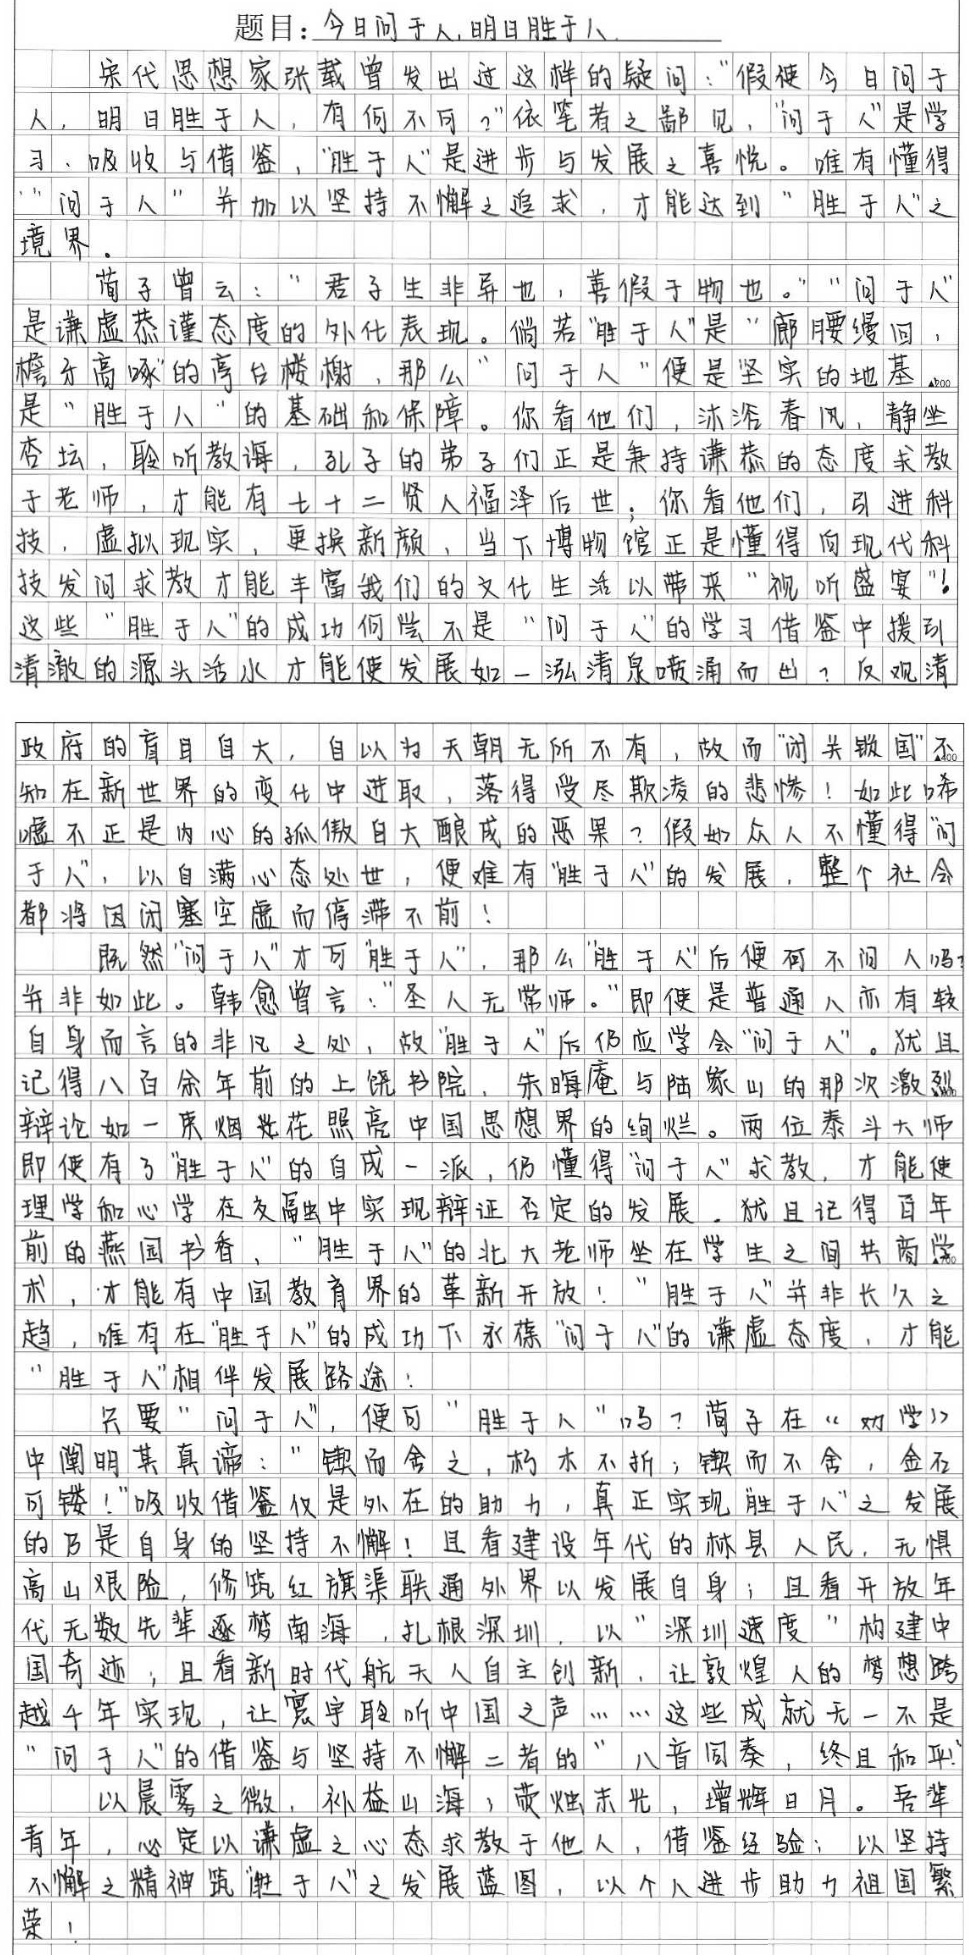 题目：今日问于人，明日胜于人
宋代思想家张载曾发出过这样的疑问："假使今日问于
人，明日胜于人，有何不可？"依笔者之鄙见，"问于人"是学
习、吸收与借鉴，"胜于人"是进步与发展之喜悦。唯有懂得
"问于人"并加以坚持不懈之追求，才能达到"胜于人"之
境界。
荀子曾云："君子生非异也，善假于物也。""问于人"
是谦虚恭谨态度的外化表现。倘若"胜于人"是"廊腰缦回，
檐牙高啄"的亭台楼榭，那么"问于人"便是坚实的地基，
▲200
是"胜于人"的基础和保障。你看他们，沐浴春风，静坐
杏坛，聆听教诲，孔子的弟子们正是秉持谦恭的态度求教
于老师，才能有七十二贤人福泽后世；你看他们，引进科
技，虚拟现实，更换新颜，当下博物馆正是懂得向现代科
技发问求教才能丰富我们的文化生活以带来"视听盛宴"！
这些"胜于人"的成功何尝不是"问于人"的学习借鉴中援引
清澈的源头活水才能使发展如一泓清泉喷涌而出？反观清
政府的盲目自大，自以为天朝无所不有，故而"闭关锁国"不
▲400
知在新世界的变化中进取，落得受尽欺凌的悲惨！如此唏
嘘不正是内心的孤傲自大酿成的恶果？假如众人不懂得"问
于人"，以自满心态处世，便难有"胜于人"的发展，整个社会
都将因闭塞空虚而停滞不前！
既然"问于人"才可"胜于人"，那么"胜于人"后便可不问人吗？
并非如此。韩愈曾言："圣人无常师。"即使是普通人亦有较
自身而言的非凡之处，故"胜于人"后仍应学会"问于人"。犹且
记得八百余年前的上饶书院，朱晦庵与陆象山的那次激烈
辩论如一束烟花照亮中国思想界的绚烂。两位泰斗大师
即便有了"胜于人"的自成一派，仍懂得"问于人"求教，才能使
理学和心学在交融中实现辩证否定的发展。犹且记得百年
前的燕园书香，"胜于人"的北大老师坐在学生之间共商学
术，才能有中国教育界的革新开放！"胜于人"并非长久之
趋，唯有在"胜于人"的成功下永葆"问于人"的谦虚态度，才能
"胜于人"相伴发展路途！
只要"问于人"，便可"胜于人"吗？荀子在《劝学》
中阐明其真谛："锲而舍之，朽木不折；锲而不舍，金石
可镂！"吸收借鉴仅是外在的助力，真正实现"胜于人"之发展
的乃是自身的坚持不懈！且看建设年代的林县人民，无惧
高山艰险，修筑红旗渠联通外界以发展自身；且看开放年
代无数先辈逐梦南海，扎根深圳，以"深圳速度"构建中
国奇迹；且看新时代航天人自主创新，让敦煌人的梦想跨
越千年实现，让寰宇聆听中国之声……这些成就无一不是
"问于人"的借鉴与坚持不懈二者的"八音同奏，终且和平"
以晨雾之微，补益山海；荧烛末光，增辉日月。吾辈
青年，必定以谦虚之心态求教于他人，借鉴经验；以坚持
不懈之精神筑"胜于人"之发展蓝图，以个人进步助力祖国繁
荣！